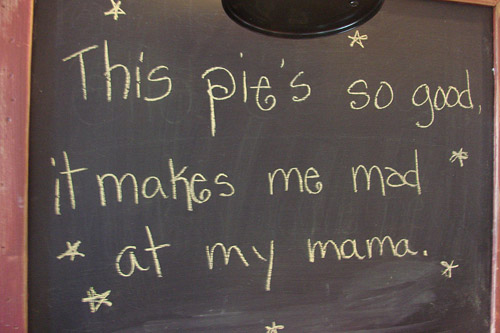 This pie's so good,
it makes me mad
at my mama.